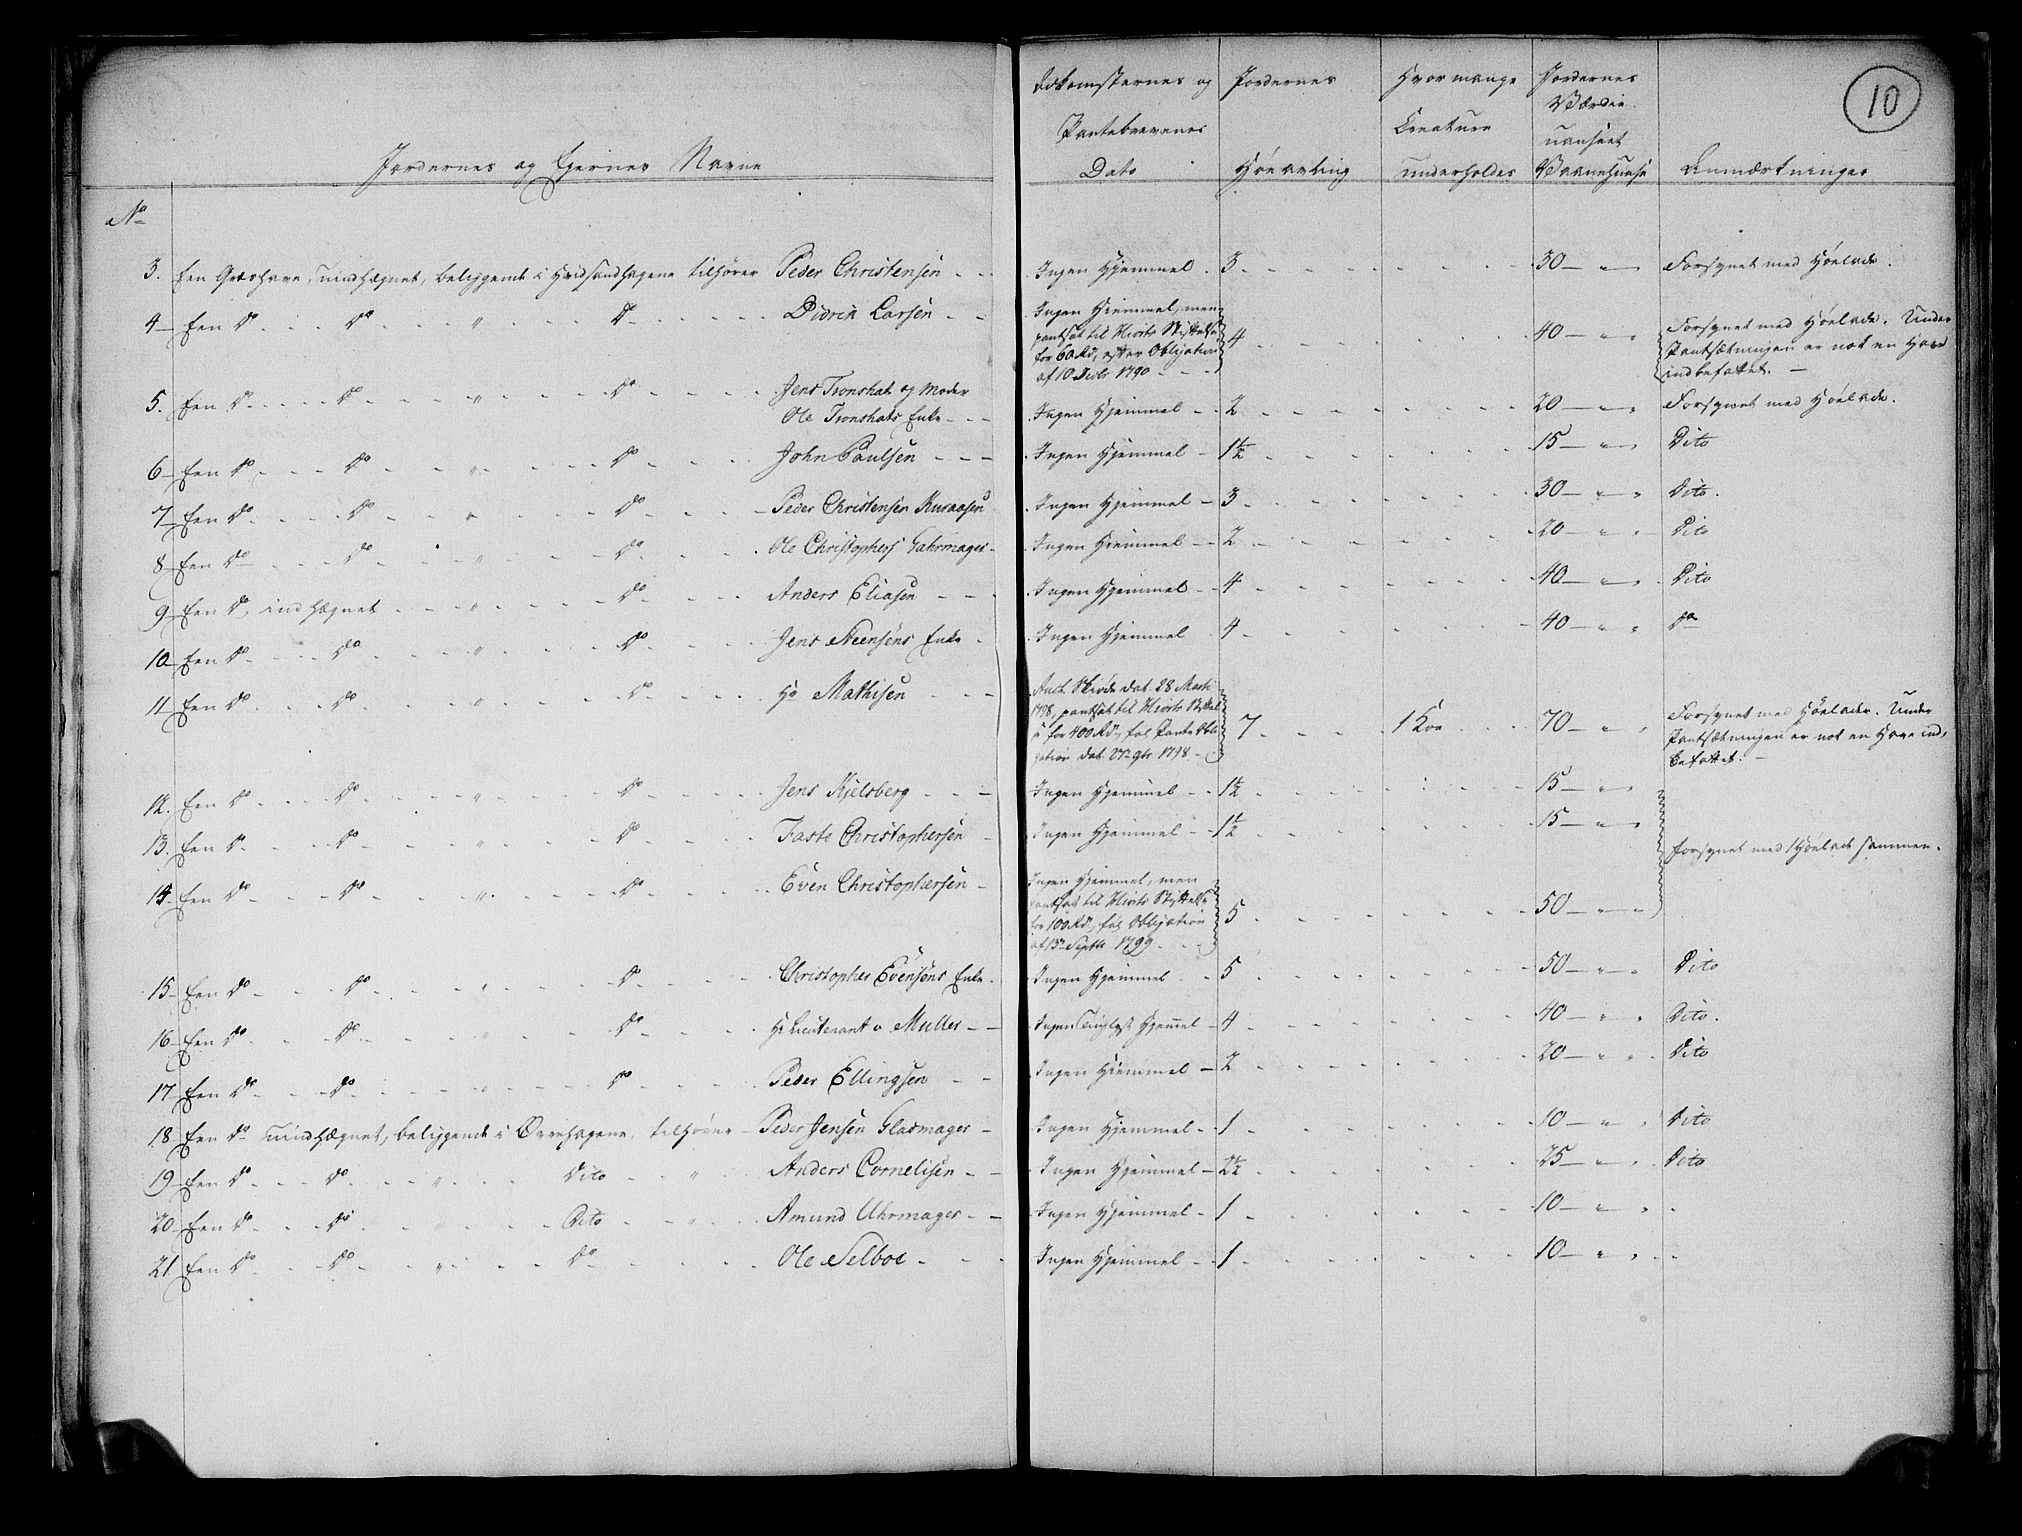 10
Jordernes og Ejernes Navne
Adkomsternes og
Pantebrevenes
Dato
Jordernes
Høe avling
Hvor mange
Creature
underholdes
Jordernes
Værdie
uanseet
Anmærkninger
No
3. Een Græshave, uindhægnet, beliggende i tilhører Peder Christensen - - - Ingen Hjemmel. 3 - - - 30 - " - Forsynet med Høelade.
4 - Een Do - - - Do - - - " - - - Do - - - Didrik Larsen - - Ingen Hiemmel, men
pantsat til Hiorts Stiftelse
for 60 Rd, efter Obligation
af 10 Decbr 1790 - - - 4 - - - 40 - " - Forsynet med Høelade. Under
Pantsætningen er nok en Have
indbefattet. -
5. Een Do - - - Do - - - " - - - Do - - - Jens Tronshat og Moder
Ole Tronshats Enke - - - Ingen Hjemmel - 2 - - - 20 - " - Forsynet med Høelade.
6 - Een Do - - - Do - - - " - - - Do - - - John Paulsen - - - Ingen Hjemmel - 1½ - - - 15 - " - Dito
7 - Een Do - - - Do - - - " - - - Do - - - Peder Christensen Kuraasen Ingen Hjemmel - 3 - - - 30 - " - Dito.
8 - Een Do - - - Do - - - " - - - Do - - - Ole Christophers Gahrmager - Ingen Hiemmel - - 2 - - - 20 - " - Dito
9 - Een Do, indhægnet - - - " - - - Do - - - Anders Eliasen - - - Ingen Hjemmel - - 4 - - - 40 - " - Dito
10 - Een Do - - - Do - - - " - - - Do - - - Jens Steensens Enke - Ingen Hjemmel - 4 - - - 40 - " - Do
11 - Een Do - - - Do - - - " - - - Do - - - Hr Mathisen - - - Auct. Skiøde dat. 28 Marti
1798, pantsat til Hiorts Stiftel
se for 400 Rd, føl. Pante Obli
gation dat. 27 9br 1798 - 7 - - - 1 Koe - - - 70 - " - Forsynet med Høelader. Under
Pantsætningen er nok en Have ind,
befattet. -
12. Een Do - - - Do - - - " - - - Do - - - Jens Kjelsberg - - - Ingen Hjemmel - - 1½ - - - 15 - " -
13. Een Do - - - Do - - - " - - - Do - - - Faste Christophersen - Ingen Hjemmel - - 1½ - - - 15 - " -
forsynet med 1 Høelade sammen.
14 - Een Do - - - Do - - - " - - - Do - - - Even Christophersen - Ingen Hjemmel, men
pantsat til Hiorts Stiftelse
for 100 Rd, føl. Obligation
af 13 Septbr 1799 - - - 5 - - - 50 - " -
15 - Een Do - - - Do - - - " - - - Do - - - Christopher Evensens Enke - Ingen Hjemmel - - 5 - - - 50 - " - Dito
16 - Een Do - - - Do - - - " - - - Do - - - Hr Lieutenant v Muller - - Ingen Tinglyst Hjemel - 4 - - - 40 - " - Dito.
17 - Een Do - - - Do - - - " - - - Do - - - Peder Ellingsen - - Ingen Hiemmel - 2 - - - 20 - " - Dito
18 - Een Do uindhægnet, beliggende i Ørenhagene, tilhører - Peder Jensen Glasmager - Ingen Hjemmel - 1 - - - 10 - " - Dito
19 - Een Do - - - Do - - - " - - - Dito - - " Anders Cornelisen - - Ingen Hjemmel - 2½ - - - 25 - " - Dito
20 - Een Do - - - Do - - - " - - - Dito - - " Amund Uhrmager - - Ingen Hjemmel - 1 - - - 10 - " -
21 - Een Do - - - Do - - - " - - - Do - - - Ole Selboe - - - Ingen Hjemmel - - 1 - - - 10 - " -